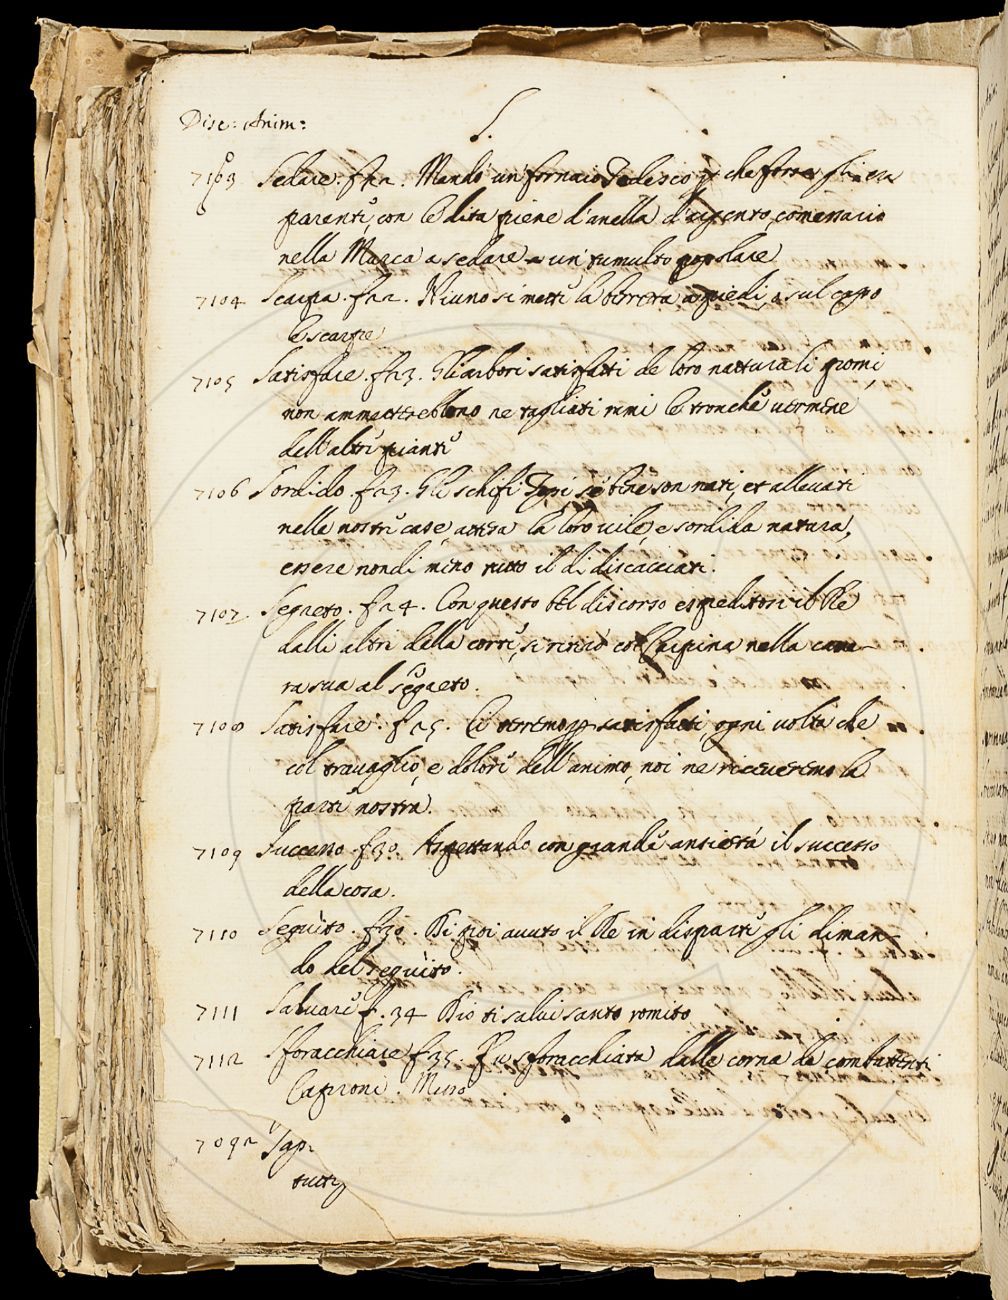 Disc: Anim:
S.
7103 Sedare. f 22. Mandò un fornaio Tedesco che forse gli era
parente, con le dita piene d'anella d'argento, comessario
nella Marca a sedare un tumulto popolare
7104 Scarpa. f 22. Niuno si mette la beretta a piedi, o sul capo
le scarpe
7105 Satisfare. f 23. Gli arbori satisfatti de loro natturali pomi,
non ammetterebbono ne tagliati rami le tronche vermene
dell'altre piante
7106 Sordido. f 23. Gli schifi Topi se bene son nati, et allevati
nelle nostre case, attesa la loro vile, e sordida natura,
essere nondimino tutto il di discacciati.
7107 Segreto. f 24. Con questo bel discorso espeditosi il Re
dalli altri della corte, si ritirò col Chipina nella came-
ra sua al segreto.
7108 Satisfare. f 25. Ci terremo satisfatti, ogni volta che
col travaglio, e dolore dell'animo, noi ne riceveremo la
parte nostra.
7109 Successo. f 30. Aspettando con grande ansietà il successo
della cosa.
7110 Seguito. f 30. Di poi avuto il Re in disparte gli diman-
dò del seguito.
7111 Salvare f. 34 Dio ti salvi santo romito
7112 Sforacchiare f 35. Fu sforacchiata dalle corna de combattenti
Caproni. Messo
7092 Sap
tutti